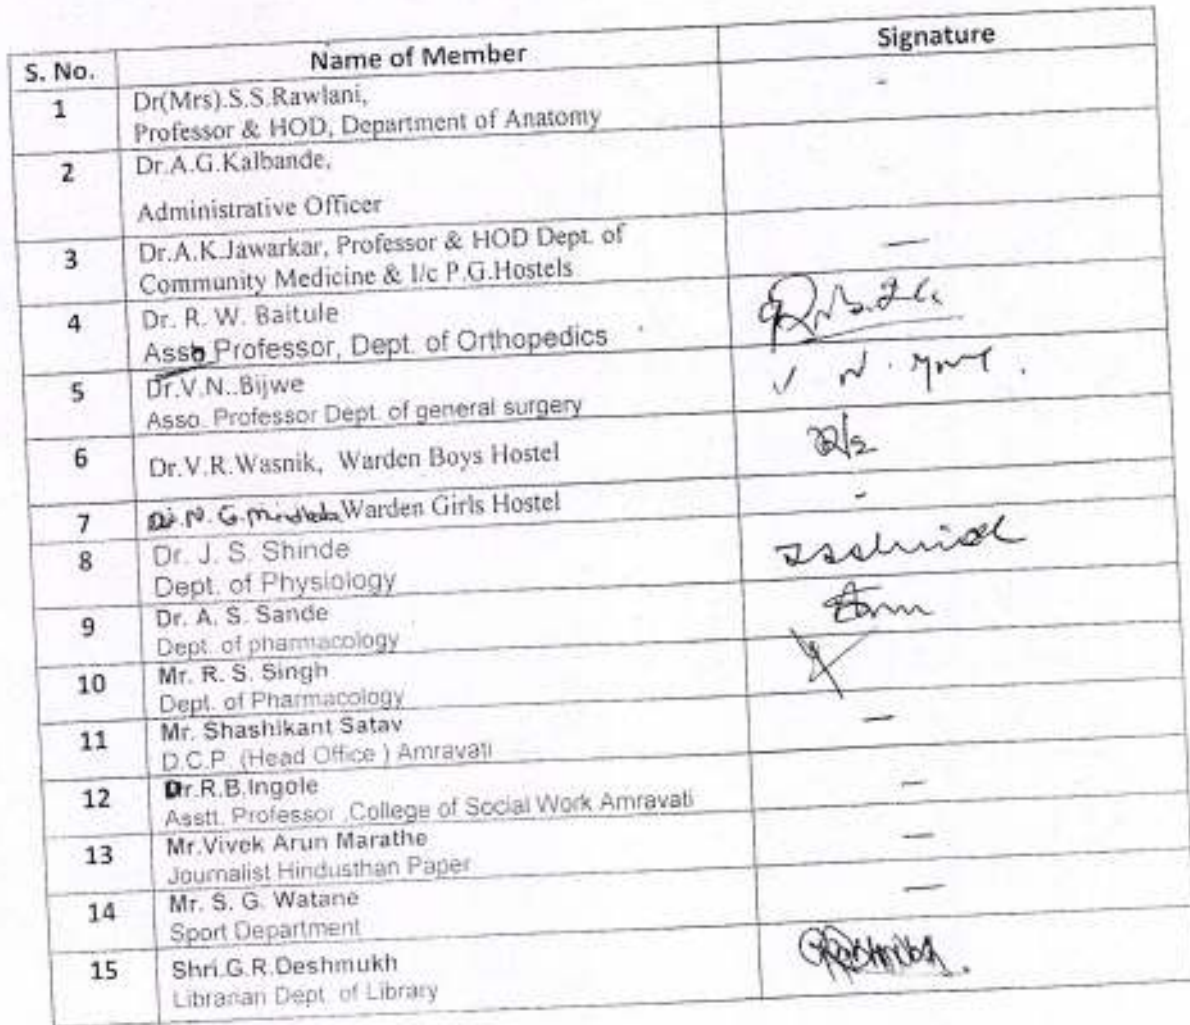 S. No. Name of Member Signature
1 Dr(Mrs).S.S.Rawlani, -
Professor & HOD, Department of Anatomy
2 Dr.A.G.Kalbande,
Administrative Officer
3 Dr.A.K.Jawarkar, Professor & HOD Dept. of —
Community Medicine & I/c P.G.Hostels
4 Dr. R. W. Baitule
Asso Professor, Dept. of Orthopedics
5 Dr.V.N..Bijwe
Asso. Professor Dept. of general surgery
6 Dr.V.R.Wasnik, Warden Boys Hostel
7 Dr. N. G. Warden Girls Hostel -
8 Dr. J. S. Shinde
Dept. of Physiology
9 Dr. A. S. Sande
Dept. of pharmacology
10 Mr. R. S. Singh
Dept. of Pharmacology
11 Mr. Shashikant Satav —
D.C.P. (Head Office ) Amravati
12 Dr.R.B.Ingole —
Asstt. Professor ,College of Social Work Amravati
13 Mr.Vivek Arun Marathe —
Journalist Hindusthan Paper
14 Mr. S. G. Watane —
Sport Department
15 Shri.G.R.Deshmukh
Librarian Dept. of Library